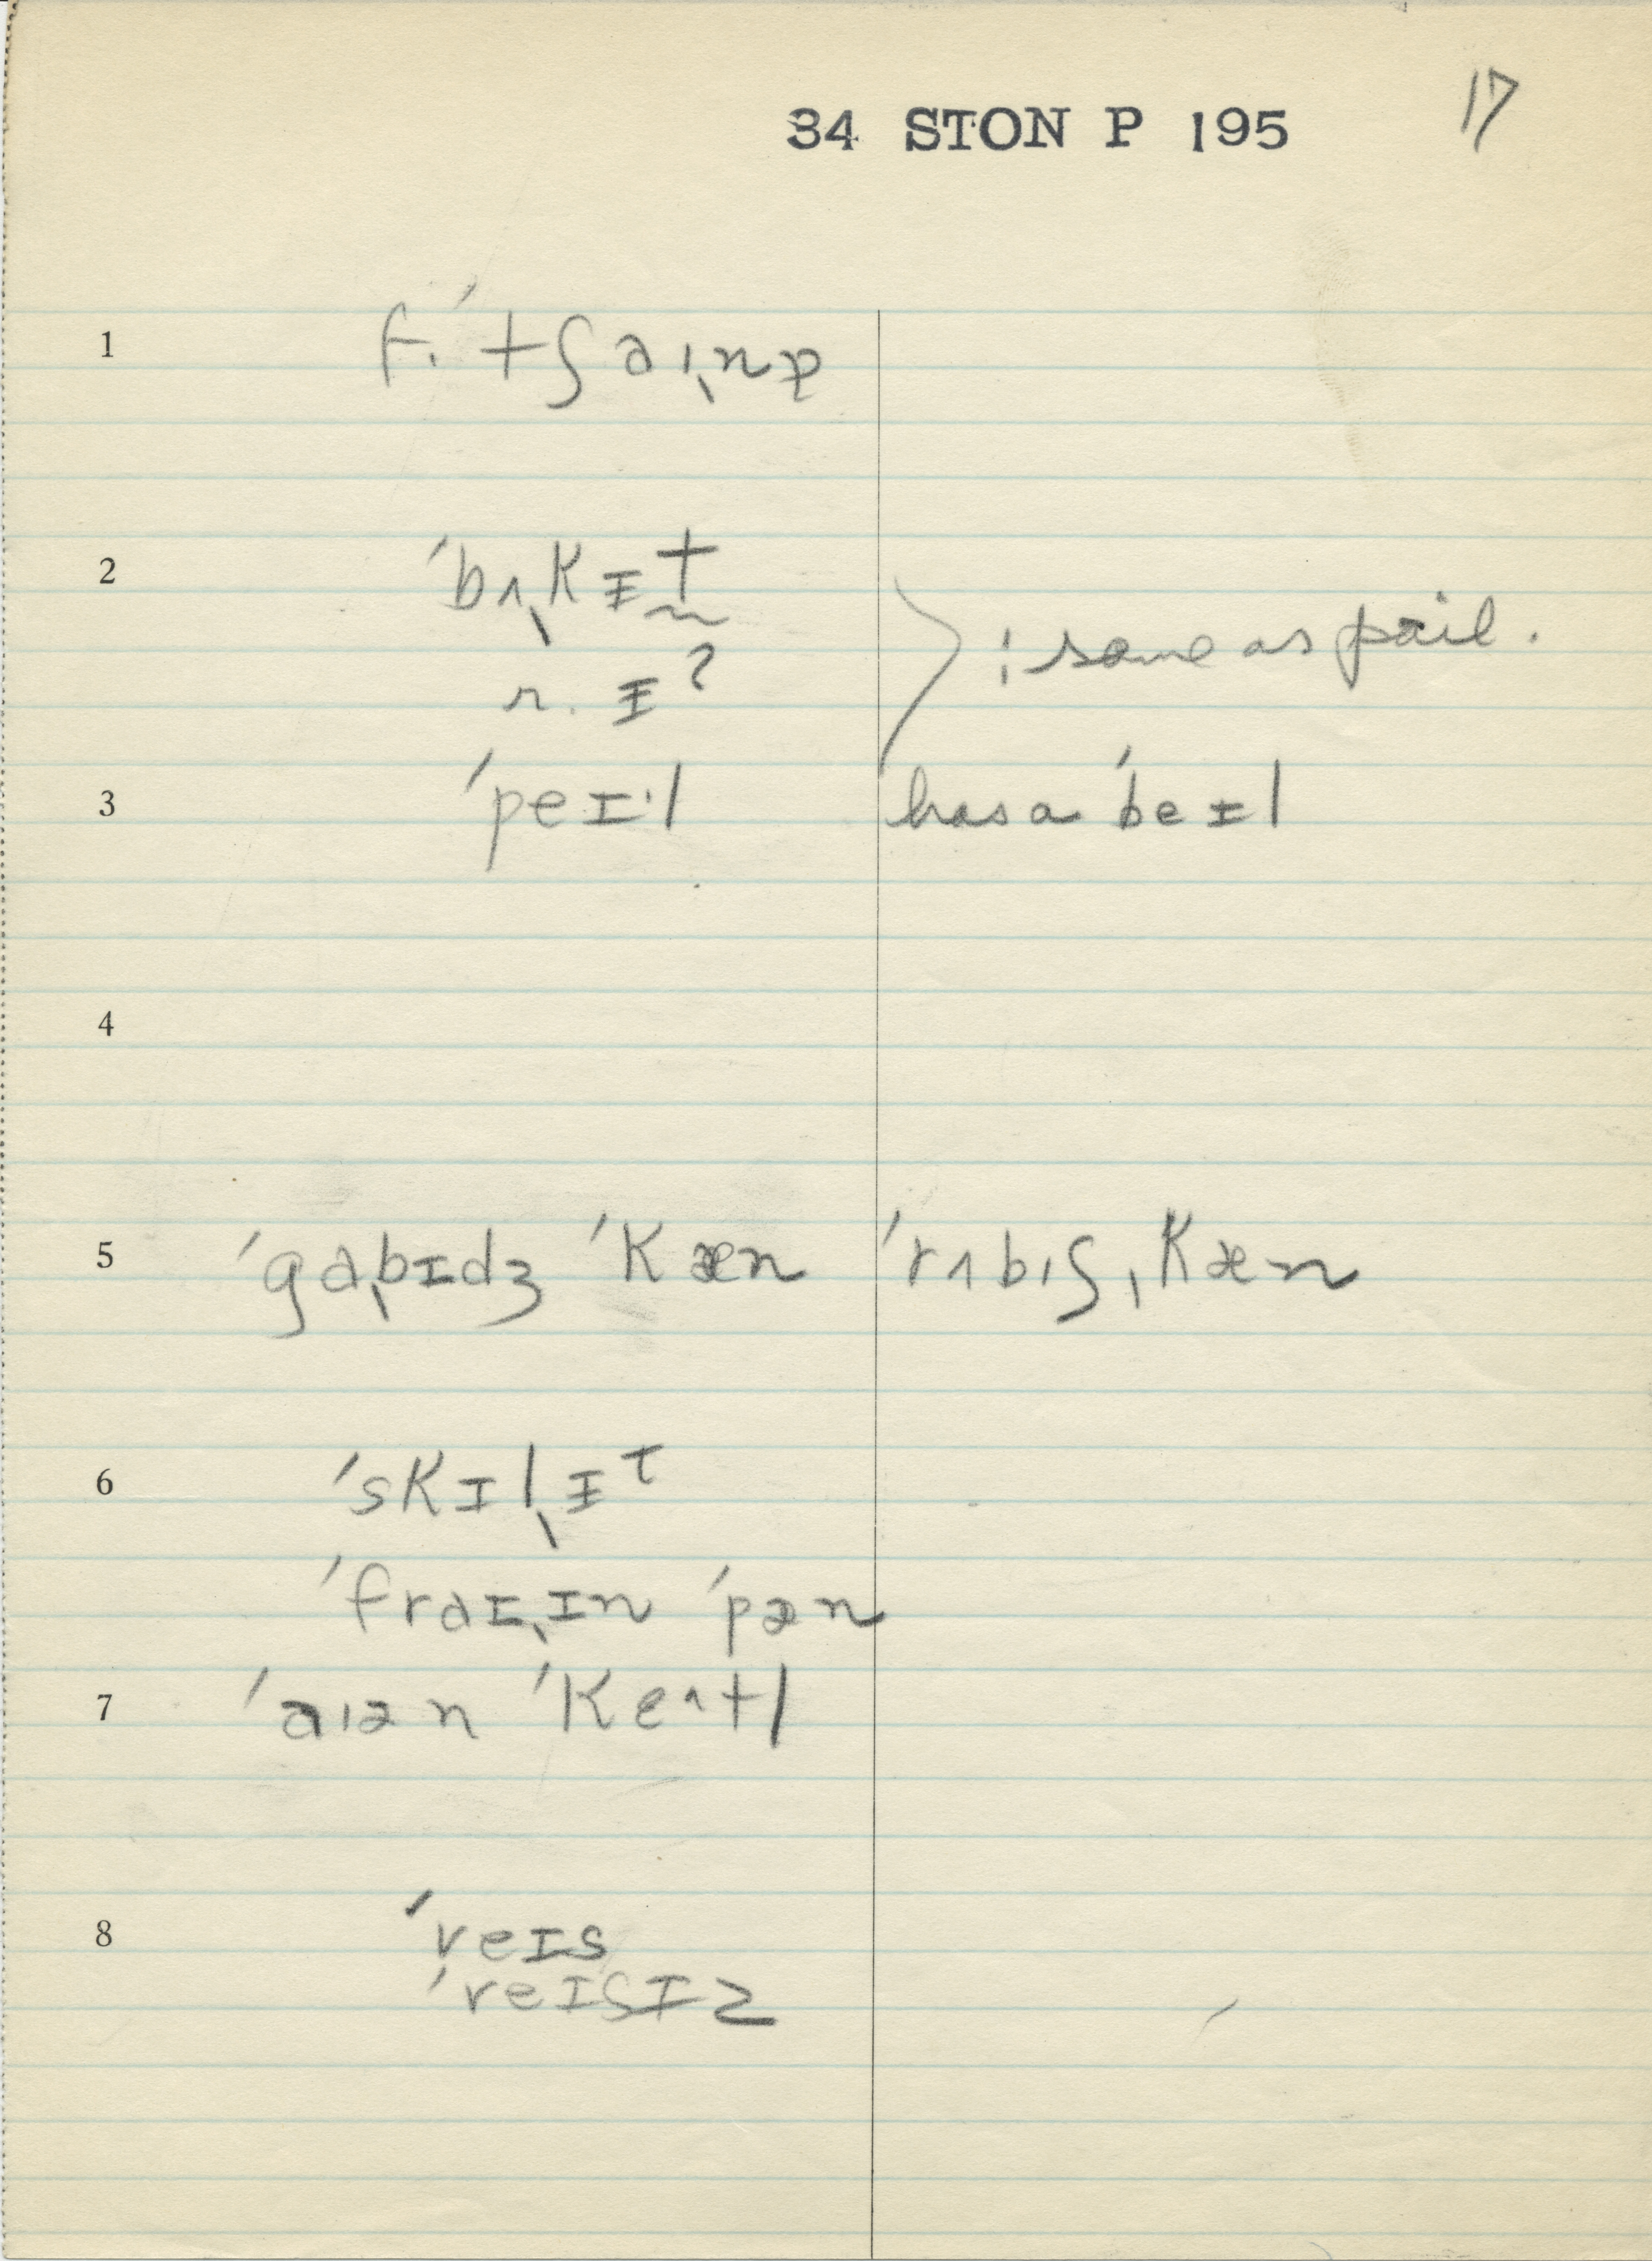 17
34 STON P 195
1 f. ˈtʃaɪˌnə
2 ˈbʌˌkɪ̵t̰ : same as pail.
ʌ. ɪ̵ʔ
3 ˈpeɪ·l has a ˈbeɪl
4
5 ˈgaˌbɪdʒ ˈkæn ˈrʌbɪʃˌkæn
6 ˈskɪlˌɪ̵t
ˈfraɪˌɪn ˈpæn
7 ˈaɪən ˈkɛ^tl
8 ˈveɪs
ˈveɪsɪz